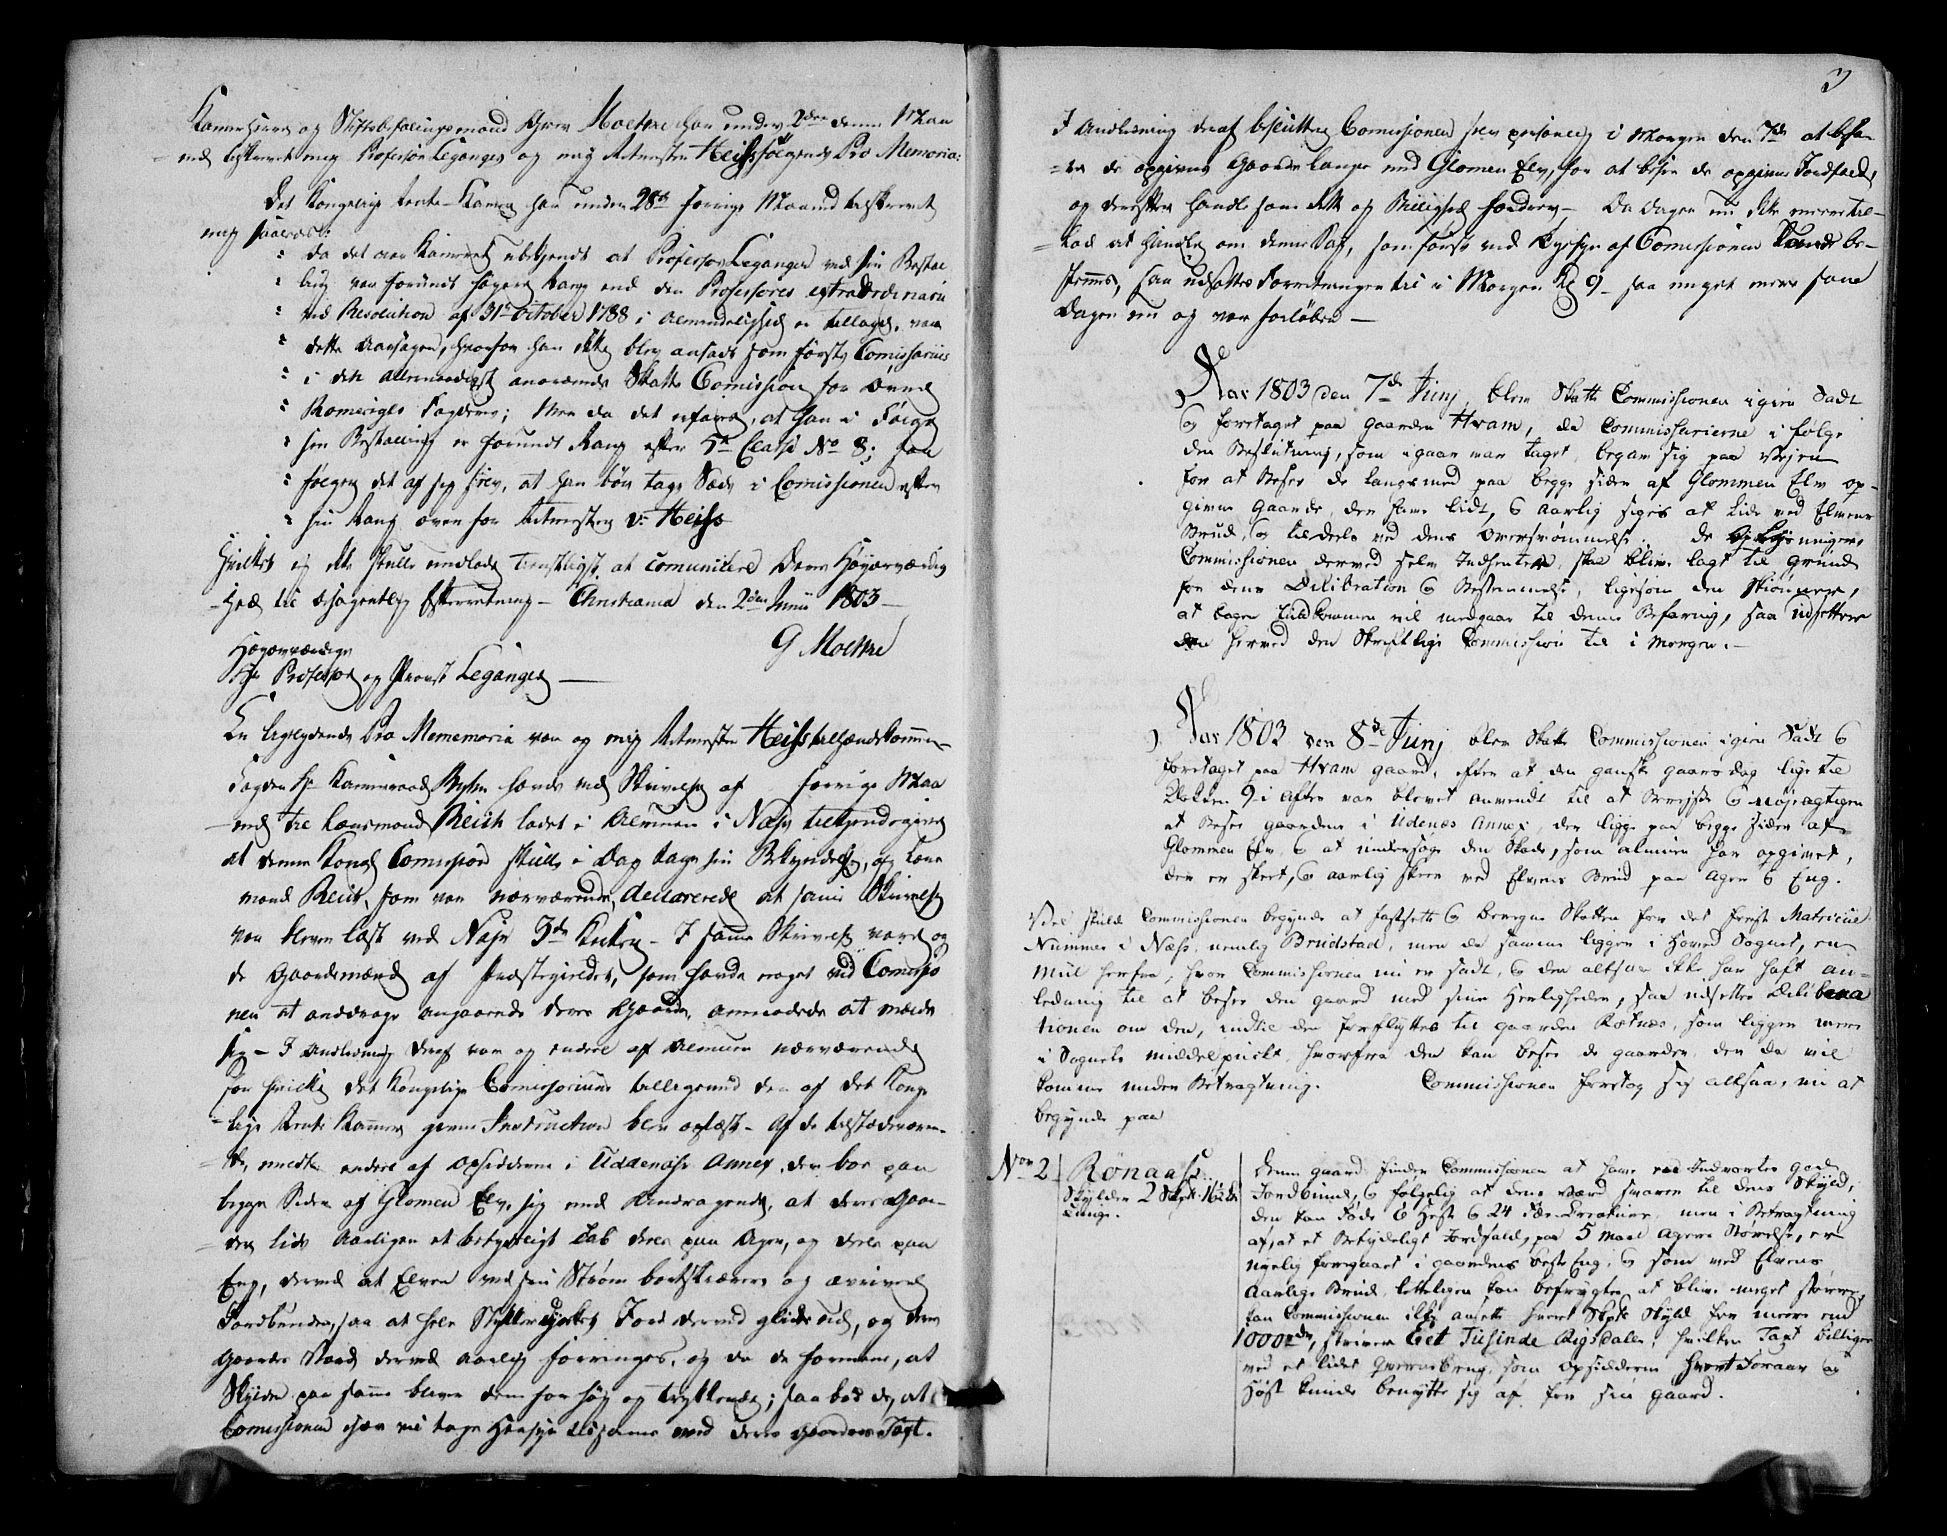 Kammerherre og Stiftsbefalingsmand Grev Moltke har under 2den denne Maa-
ned tilskrevet mig Professor Leganger og mig Ritmester Heiss følgende Pro Memoria:
Det Kongelige Rente-Kammer har under 28de forrige Maaned tilskrevet
mig saaledes:
: da det var Kammeret ubekjendt at Professor Leganger ved sin Bestal-
: ling var forundt høyere Rang end den Professores extraordinarii
: ved Resolution af 31te October 1788 i Almindelighed er tillagt, var
: dette Aarsagen, hvorfor han ikke blev ansadt som første Comissarius
: i den allernaadigst anordnede Skatte Comission for Øvre
: Romeriges Fogderie; Men da det erfares, at han i Følge
: sin Bestalling er forundt Rang efter 5te Classe No 8; saa
: følger det af sig selv, at han bør tage Sæde i Comissionen efter
: sin Rang oven for Ritmester v: Heiss
Hvilket jeg ikke skulle undlade tienstligst at comunicere Deres Høyærværdig-
-hed til behagentlig Efterretning - Christiania den 2den Junii 1803 -
G Moltke
Høyærværdige
Hr Professor og Provst Leganger -
En ligelydende Pro Mememoria var og mig Ritmester Heiss tilhændekommen -
Fogden Hr Kammerraad Bryhn havde ved Skrivelse af forrige Maa-
-ned til Lensmand Reich ladet i Almuen i Næss tilkjendegive
at denne Kongl Comission skulle i Dag tage sin Begyndelse, og Lens-
mand Reich, som var nærværende, declarerede at samme Skrivelse
var bleven læst ved Næss 3de Kirker - I samme Skrivelse vare og
de Gaardmænd af Præstegieldet, som havde noget ved Comissio-
nen at anddrage angaaende deres Gaarde, anmodede at melde
sig - I Anledning deraf var og endeel af Almuen nærværende
for hvilke det Kongelige Comissorium tilligemed den af det Konge-
-lige Rente Kammer givne Instruction blev oplæst - Af de tilstædeværen-
-de, meldte endeel af Opsidderne i Uddenæss Annex, der boe paa
begge Sider af Glomen Elv, sig med Andragende, at deres Gaar-
-der lide Aarligen et betydeligt Tab deels paa Ager, og deels paa
Eng, derved at Elven ved sin Strøm bortskierer og udriver
Jordbunden, saa at hele Stykker dyrket Jord derved gliide ud, og deres
Gaardes Værd derved Aarlig forringes, og da de formene, at
Skylden paa samme bliver dem for høy og trykkende; saa bad de, at
Comissionen især vil tage Hensyn til samme med deres Gaardes Taxt.
3
I Anledning deraf besluttede Comissionen selv personlig i Morgen den 7de at befa-
-re de opgivne Gaarde langs med Glomen Elv, for at besee de opgivne Jordfald,
og derefter handle som Ret og Billighed fordrer - Da Dagen nu ikke mere til-
-lod at handle om denne Sag, som først ved Øyesyn af Comissionen kunde be-
stemmes, saa udsattes Forretningen til i Morgen Kl 9 - saa meget mere som
Dagen nu og var forløben -
Aar 1803 den 7de Junj, blev Skatte Commissionen igien sadt
og foretaget paa Gaarden Hvam, da Commissarierne i følge
den Beslutning, som igaar var taget, begav sig paa Veyen
for at besee de langsmed paa begge sider af Glommen Elv op-
givne Gaarde, der have lidt, og aarlig siges at lide ved Elvens
Brud, og tildeels ved dens Oversvømmelse. De Oplysninger
Commissionen derved selv indhentede, skal blive lagt til Grund
for dens Deliberation og Bestemmelse, ligesom den skiønner,
at Dagen fuldkommen vil medgaae til denne Befaring, saa udsettes
den herved den Skriftlige Commission til i Morgen. -
Aar 1803 den 8de Junj blev Skatte Commissionen igien sadt og
foretaget paa Hvam gaard, efter at den ganske gaars dag lige til
Klokken 9 i Aften var blevet anvendt til at bereyse og nøyagtigen
at besee gaardene i Udenæs Annex, der ligge paa begge sider af
Glommen Elv, og at undersøge den Skade, som almuen har opgivet,
der er skeet, og aarlig skeer ved Elvens Brud paa Ager og Eng.
Vel skulde Commissionen begynde at fastsette og beregne Skatten for det første Matricul
Nummer i Næss, nemlig Brudstad, men da samme ligger i Hoved Sognet, en
Miil herfra, hvor Commissionen nu er sadt, og den altsaa ikke har haft an-
ledning til at besee den gaard med sine Herligheder, saa udsettes Delibera
tionen om den, indtil den forflyttes til gaarden Rotnes, som ligger mere
i Sognets middelpuckt, hvorfra den kan besee de gaarder, der da vil
komme under Betragtning. Commissionen foretog sig altsaa, nu at
begynde paa
Nor 2 Rønaas:
Skylder 2 Skpd 16 Lb
Tunge.
Denne gaard finder Commissionen at have ved Indvortes god
Jordbund, og følgelig at dens Værd svarer til dens Skyld,
den kan føde 6 Heste og 24 Fæe-Creaturer, men i Betragtning
af, at et Betydeligt Jordfald, paa 5 maal Agers Størrelse, er
nyelig foregaaet i gaardens beste Eng, og som ved Elvens
Aarlige Brud letteligen kan befrygtes at blive meget større,
kan Commissionen ikke ansette hvert Skpd Skyld for mere end
1000 rdr, skriver Eet Tusinde Rigsdaler, hvilken Taxt billiges
ved et lidet Qværnebrug, som Opsidderen hvert Foraar og
Høst kunde benytte sig af for sin gaard.